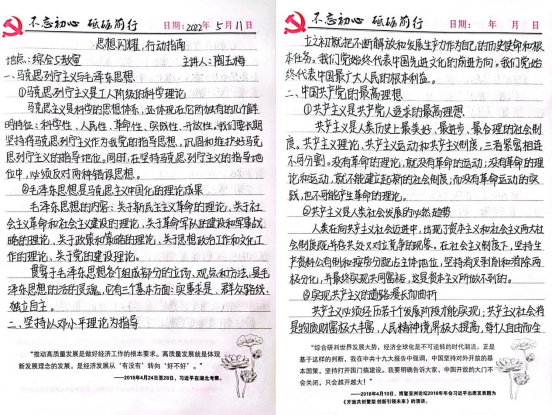 不忘初心 砥砺前行
日期：2022年5月11日
思想闪耀，行动指南
地点：综合5教室 主讲人：陶玉梅
一、马克思列宁主义与毛泽东思想
①马克思列宁主义是工人阶级的科学理论
马克思主义是科学的思想体系，这体现在它所独有的几个鲜
明特征：科学性、人民性、革命性、实践性、开放性。我们要长期
坚持将马克思列宁主义作为我党的指导思想，巩固和维护好马克
思列宁主义的指导地位。同时，在坚持马克思列宁主义的指导地
位中，必须反对两种错误思想。
②毛泽东思想是马克思主义中国化的理论成果
毛泽东思想的内容：关于新民主主义革命的理论，关于社
会主义革命和社会主义建设的理论，关于革命军队的建设和军事战
略的理论，关于政策和策略的理论，关于思想政治工作和文化工
作的理论，关于党的建设理论。
贯穿于毛泽东思想各个组成部分的立场、观点和方法，是毛
泽东思想的活的灵魂，它有三个基本方面：实事求是、群众路线、
独立自主。
二、坚持以邓小平理论为指导
“推动高质量发展是做好经济工作的根本要求。高质量发展就是体现
新发展理念的发展，是经济发展从“有没有”转向“好不好”。”
——2018年4月24日至28日，习近平在湖北考察。
不忘初心 砥砺前行
日期： 年 月 日
立之初就把不断解放和发展生产力作为自己的历史使命和根
本任务。我们党始终代表中国先进文化的前进方向。我们党始
终代表中国最广大人民的根本利益。
二、中国共产党的最高理想
①共产主义是共产党人追求的最高理想
共产主义是人类历史上最美好、最进步、最合理的社会制
度。共产主义理论、共产主义运动和共产主义制度，三者紧密相连
不可分割。没有革命的理论，就没有革命的运动；没有革命的理
论和运动，就不能建立起新的社会制度；而没有革命运动的实
践，也不可能产生革命的理论。
②共产主义是人类社会发展的必然趋势
人类在向共产主义社会迈进中，出现了资本主义和社会主义两大社
会制度既并存共处又对立竞争的现象。在社会主义制度下，坚持生
产资料公有制和按劳分配占主体地位，坚持消灭剥削和消除两
极分化，并最终实现共同富裕，这是资本主义所做不到的。
③实现共产主义的道路漫长而曲折
共产主义必须经历若干个发展阶段才能实现；共产主义社会将
是物质财富极大丰富，人民精神境界极大提高，每个人自由而全
“综合研判世界发展大势，经济全球化是不可逆转的时代潮流。正是
基于这样的判断，我在中共十九大报告中强调，中国坚持对外开放的基
本国策，坚持打开国门搞建设。我要明确告诉大家，中国开放的大门不
会关闭，只会越开越大！”
——2018年4月10日，博鳌亚洲论坛2018年年会习近平出席发表题为
《开放共创繁荣 创新引领未来》的演讲。